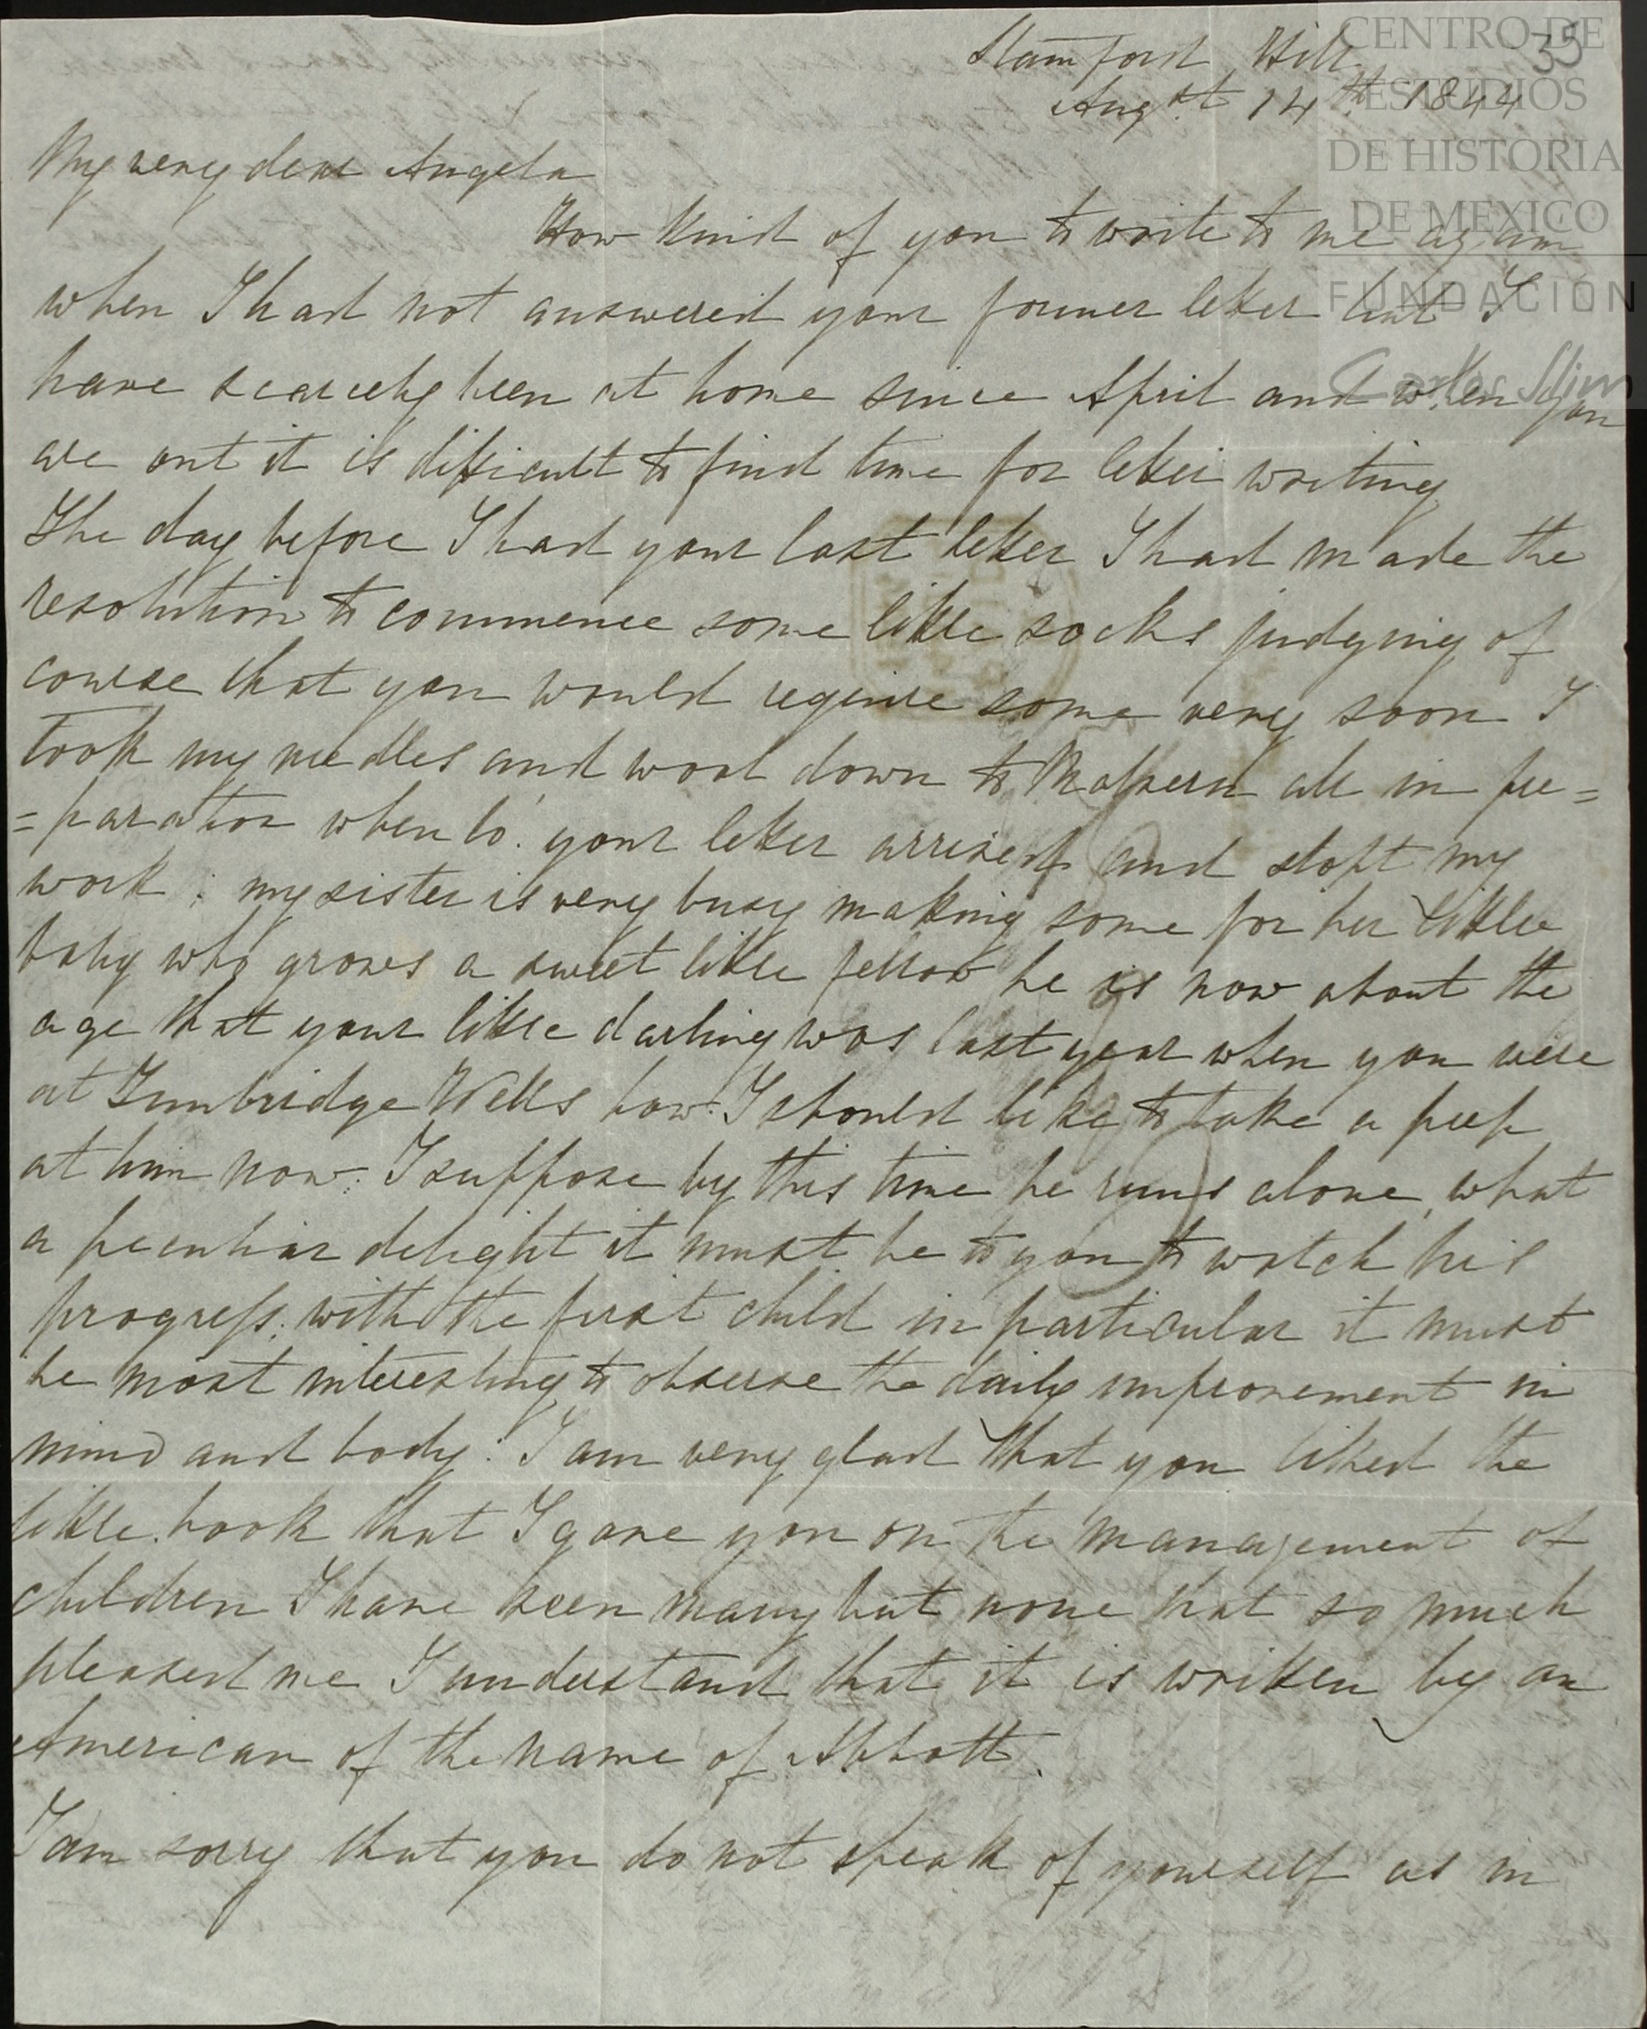 35
CENTRO DE
ESTUDIOS
DE HISTORIA
DE MEXICO
FUNDACIÓN
Carlos Slim
Stamford Hill
Augst 14th 1844
My very dear Angela
How kind of you to write to me again
when I had not answered your former letter but I
have scarcely been at home since April and when you
are out it is difficult to find time for letter writing
The day before I had your last letter I had made the
resolution to commence some little socks judging of
course that you would require some very soon I
took my needles and wool down to Malvern all in pre=
=paration when lo! your letter arrived and stopt my
work : my sister is very busy making some for her little
baby who grows a sweet little fellow he is now about the
age that your little darling was last year when you were
at Tunbridge Wells how I should like to take a peep
at him now. I suppose by this time he runs alone, what
a peculiar delight it must be to you to watch his
progress; with the first child in particular it must
be most interesting to observe the daily improvement in
mind and body : I am very glad that you liked the
little book that I gave you on the management of
children I have seen many but none that so much
pleased me I understand that it is written by an
American of the name of Abbott.
I am sorry that you do not speak of yourself as in